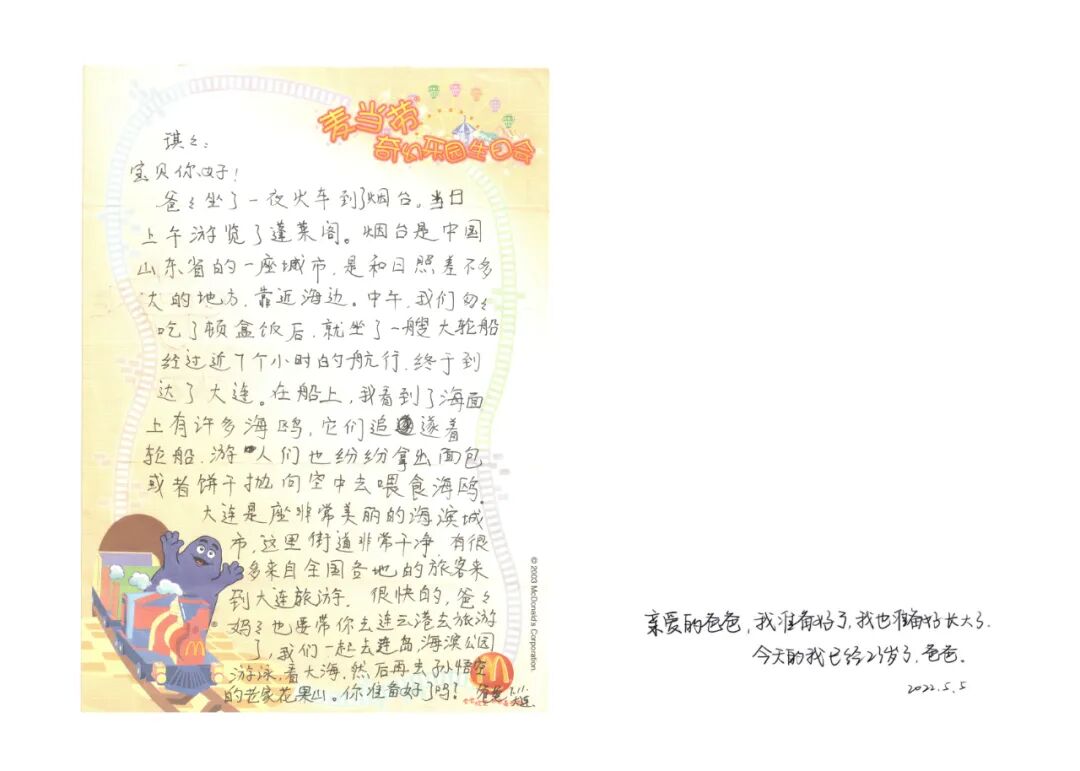 麦当劳
奇幻乐园生日会
琪々：
宝贝你好！
爸々坐了一夜火车到了烟台。当日
上午游览了蓬莱阁。烟台是中国
山东省的一座城市，是和日照差不多
大的地方，靠近海边。中午，我们匆々
吃了顿盒饭后，就坐了一艘大轮船
经过近7个小时的航行，终于到
达了大连。在船上，我看到了海面
上有许多海鸥，它们追遂着
轮船，游人们也纷纷拿出面包
或者饼干抛向空中去喂食海鸥。
大连是座非常美丽的海滨城
市，这里街道非常干净，有很
多来自全国各地的旅客来
到大连旅游。很快的，爸々
妈々也要带你去连云港去旅游
了，我们一起去连岛海滨公园
游泳，看大海，然后再去孙悟空
的老家花果山。你准备好了吗！
爸爸 7.11.
大连.
© 2003 McDonald's Corporation
亲爱的爸爸，我准备好了，我也准备好长大了.
今天的我已经21岁了，爸爸.
2022.5.5